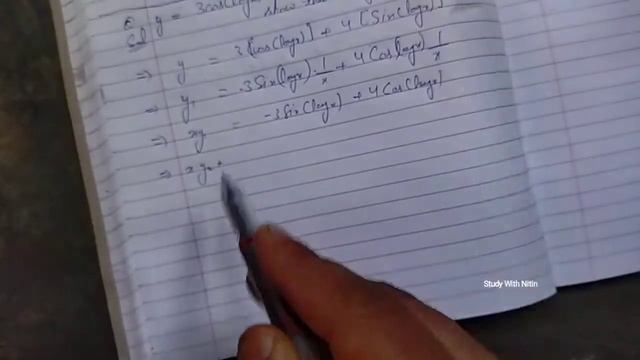 Q. y = 3cos(log show that
Sol
⇒ y = 3[cos(logx)] + 4[Sin(logx)]
⇒ y₁ = -3Sin(logx)·1/x + 4Cos(logx) 1/x
⇒ xy₁ = -3Sin(logx) + 4Cos(logx)
⇒ xy₂ +
Study With Nitin